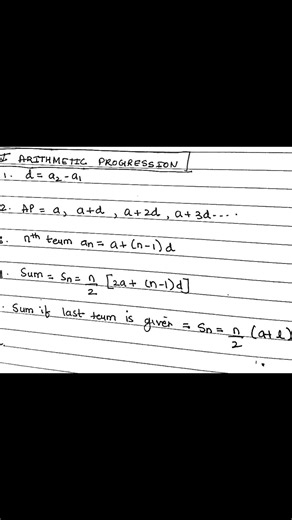 I ARITHMETIC PROGRESSION
1. d = a₂ - a₁
2. AP = a, a+d, a+2d, a+3d.....
nᵗʰ term an = a + (n-1) d
Sum = Sn = n/2 [2a + (n-1) d]
Sum if last term is given = Sn = n/2 (a+l)